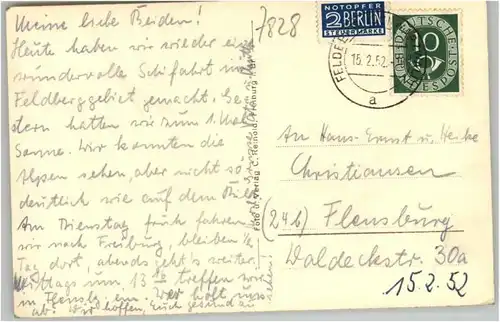 Meine liebe Beiden!
Heute haben wir wieder eine
wundervolle Schifahrt im
Feldberggebiet gemacht. Ge-
stern hatten wir zum 1. Mal
Sonne. Wir konnten die
Alpen sehen, aber nicht so
deutlich wie auf dem Bild.
Am Dienstag früh fahren
wir nach Freiburg, bleiben ½
Tag dort, abends geht's weiter.
Mittags um 13 treffen wir
in Flensbg. ein. Wer holt uns
ab? Wir hoffen, Euch gesund zu
sehen!
7828
NOTOPFER
2 BERLIN
STEUERMARKE
15.2.52.
a
DEUTSCHE
10
BUNDESPOST
Foto u. Verlag C.
An Hans-Ernst u. Heike
Christiansen
(24b) Flensburg
Waldeckstr. 30a
15.2.52